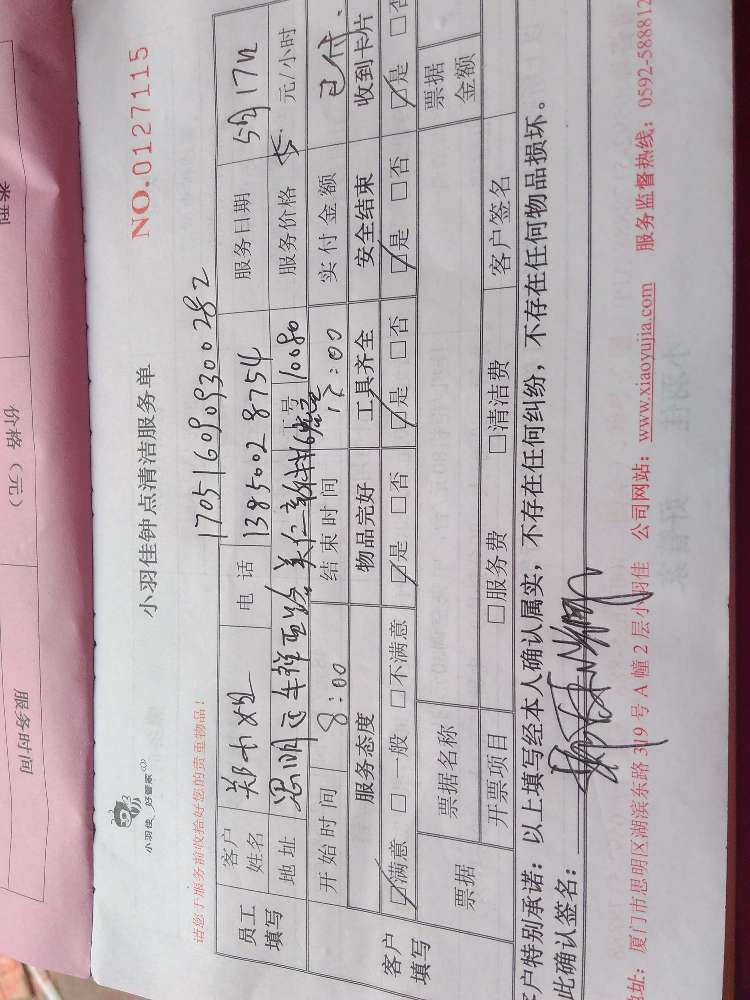 小羽佳 好管家
小羽佳钟点清洁服务单
NO.0127115
请您于服务前收拾好您的贵重物品!
17051609093002 82
员工填写
客户姓名 郑 电话 13850028754 服务日期 5月17日
地址 思明区 号 10080 服务价格 元/小时
开始时间 8:00 结束时间 12:00 实付金额 已付
客户填写
服务态度 物品完好 工具齐全 安全结束 收到卡片
☑满意 □一般 □不满意 ☑是 □否 ☑是 □否 ☑是 □否 ☑是 □否
票据 票据名称 票据金额
开票项目 □服务费 □清洁费 客户签名
客户特别承诺:以上填写经本人确认属实,不存在任何纠纷,不存在任何物品损坏。
此确认签名:
地址:厦门市思明区湖滨东路319号A幢2层小羽佳 公司网站:www.xiaoyujia.com 服务监督热线:0592-588812
类型
价格(元)
服务时间